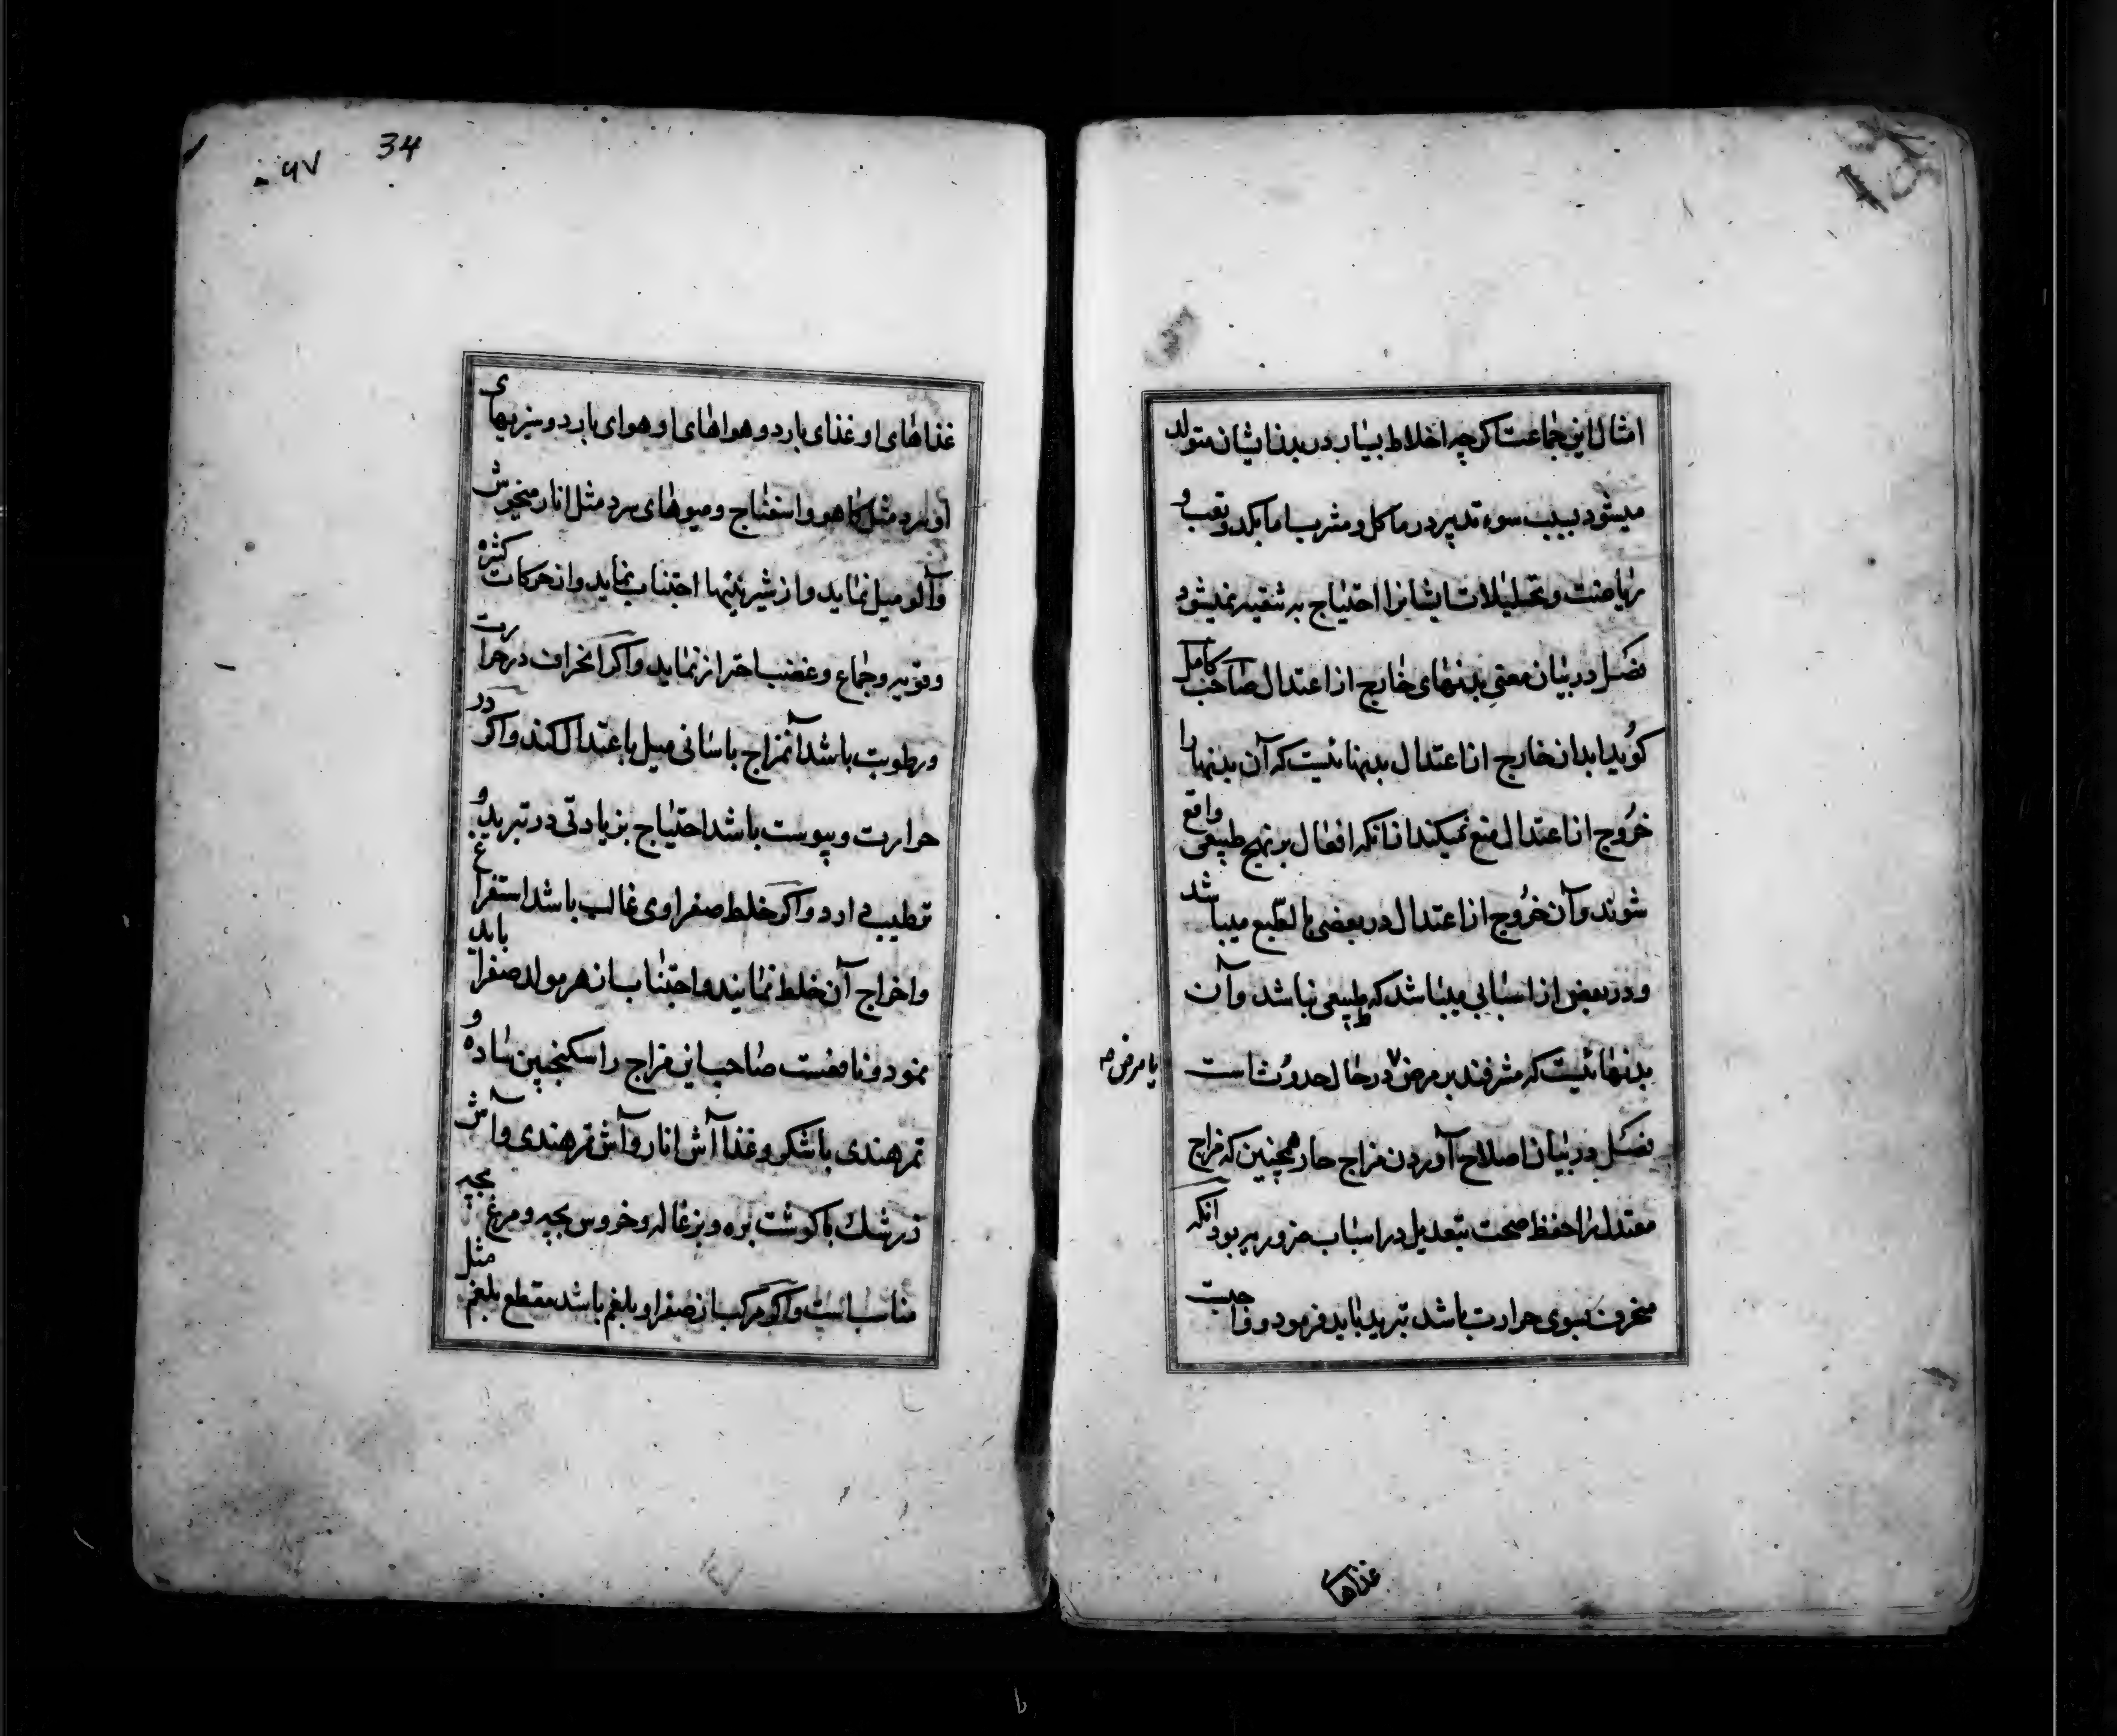 امثال این جماعت اکرچه اخلاط بسیار در بدن ایشان متولد
میشود بسبب سوء تدبیر در ماکل و مشرب اما بکد و تعب و
ریاضت و تحلیلات ایشانرا احتیاج به تنقیه نمیشود
فصل در بیان معنی بدنهای خارج از اعتدال صاحب کامل
کوید ابدان خارج از اعتدال بدنهائیست که آن بدنها را
خروج از اعتدال منع نمیکند از انکه افعال بر نهج طبیعی واقع
شوند و آن خروج از اعتدال در بعضی بالطبع میباشد
و در بعض از اسبابی میباشد که طبیعی نباشد و آن
بدنهائیست که مشرفند بر مرض ٧ در حال حدوث است
یا مرض صه
فصل در بیان اصلاح آوردن مزاج حار همچنین که مزاج
معتدل را حفظ صحت بتعدیل در اسباب ضروریه بود انکه
منحرف بسوی حرارت باشد تبرید باید فرمود و واجبست
غذاهای
34
٦٧
غذاهای او غذای بارد و هواهای او هوای بارد و سبزیهای
او سرد مثل کاهو و اسفناج و میوهای سرد مثل انار میخوش
و آلو میل نماید و از شیرینیها اجتناب نماید و از حرکات کثیره
و قویه و جماع و غضب احتراز نماید و اکر انحراف در حرارت
و رطوبت باشد آنمزاج باسانی میل باعتدال کند و اکر در
حرارت و یبوست باشد احتیاج بزیادتی در تبرید و
ترطیب دارد و اکر خلط صفراوی غالب باشد استفراغ
و اخراج آن خلط نمایند و اجتناب از هر مولد صفرا باید
نمود و نافعست صاحب این مزاج را سکنجبین ساده و
تمر هندی با شکر و غذا آش انار و آش تمر هندی و آش
زرشك با کوشت بره و بزغاله و خروس بچه و مرغ بچه
مناسب است و اکر مرکب از صفرا و بلغم باشد مقطع بلغم مثل